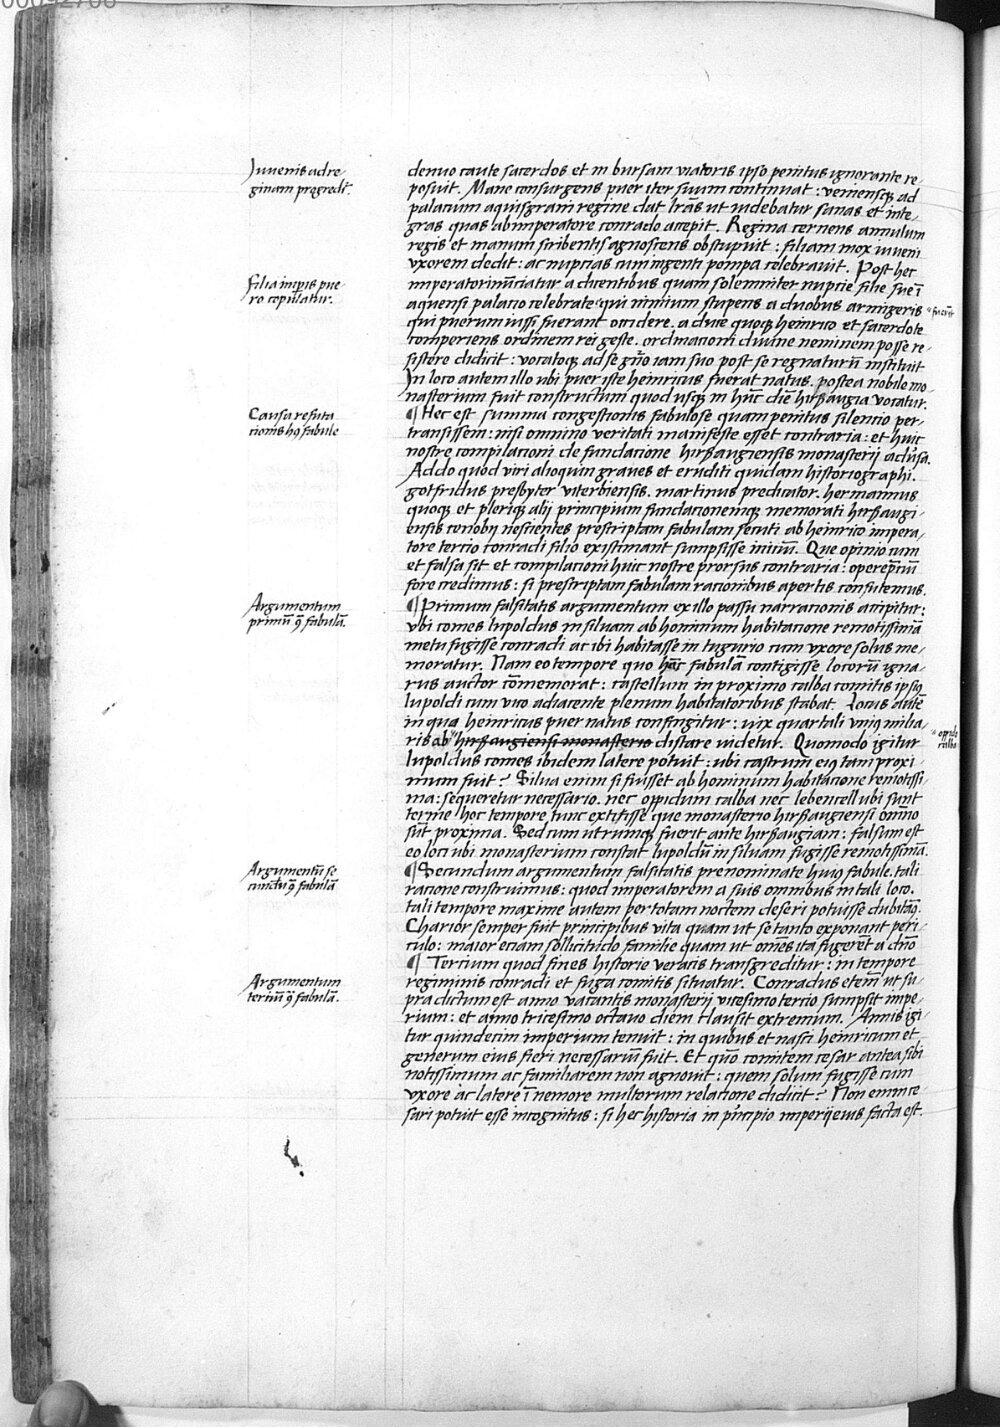 Juuenis ad re-
ginam progredit̃.
Filia impis pue
ro copulatur.
Causa refuta
tionis hꝰ fabule
Argumentum
primũ ꝯ fabulã.
Argumentũ se
cundũ ꝯ fabulã
Argumentum
terciũ ꝯ fabulã.
denuo caute sacerdos et in bursam viatoris ipso penitus ignorante re-
posuit. Mane consurgens puer iter suum continuat : veniensqꝫ ad
palatium aquisgrani regine dat lr̃as ut videbatur sanas et inte-
gras quas ab imperatore conrado accepit. Regina cernens annulum
regis et manum scribentis agnoscens obstupuit : filiam mox iuueni
vxorem dedit : ac nupcias cum ingenti pompa celebrauit. Post hec
imperatori nũciatur a dicentibus quam solemniter nupcie filie sue ĩ
aquensi palacio celebrate qui nimium stupens a duobus armigeris
qui puerum iussi fuerant occidere. a duce quoqꝫ heinrico et sacerdote
comperiens ordinem rei geste. ordinacioni diuine neminem posse re-
sistere didicit : vocatoqꝫ ad se gñio iam suo post se regnaturũ instituit
In loco autem illo ubi puer iste heinricus fuerat natus. postea nobile mo-
nasterium fuit constructum quod usqꝫ in hũc diẽ hirßaugia vocatur.
¶ Hec est summa congestionis fabulose quam penitus silencio per-
transissem : nisi omnino veritati manifeste esset contraria : et huic
nostre compilacioni de fundacione hirßaugiensis monasterij aduersa.
Addo quod viri alioquin graues et eruditi quidam historiographi.
gotfridus presbyter viterbiensis. martinus predicator. hermannus
quoqꝫ et pleriqꝫ alij principium fundacionemqꝫ memorati hirßaugi-
ensis cenobij nescientes prescriptam fabulam secuti ab heinrico impera-
tore tercio conradi filio existimant sumpsisse iniciũ. Que opinio cum
et falsa sit et compilacioni huic nostre prorsus contraria : operepreciũ
fore credimus : si prescriptam fabulam racionibus apertis confutemus.
¶ Primum falsitatis argumentum ex illo passu narracionis accipitur :
vbi comes lupoldus in siluam ab hominum habitacione remotissimã
metu fugisse conradi ac ibi habitasse in tugurio cum vxore solus me-
moratur. Nam eo tempore quo hãc fabulã contigisse locorũ igna-
rus auctor cõmemorat : castellum in proximo calba comitis ipsiꝰ
lupoldi cum vico adiacente plenum habitatoribus stabat. Locus autẽ
in quo heinricus puer natus confingitur : vix quartali vniꝰ milia-
ris ab hirßaugiensi monasterio distare videtur. Quomodo igitur
lupoldus comes ibidem latere potuit : ubi castrum eiꝰ tam proxi-
mum fuit ? Silua enim si fuisset ab hominum habitacione remotissi-
ma : sequeretur necessario. nec oppidum calba nec lebencell ubi sunt
terme hoc tempore tunc extitisse que monasterio hirßaugiensi om̃no
sũt proxima. Sed cum utrumqꝫ fuerit ante hirßaugiam : falsum est
eo loci ubi monasterium constat lupoldũ in siluam fugisse remotissimã.
¶ Secundum argumentum falsitatis prenominate huiꝰ fabule. tali
racione construimus : quod imperatorem a suis omnibus in tali loco.
tali tempore maxime autem per totam noctem deseri potuisse dubitãꝰ.
Charior semper fuit principibus vita quam ut se tanto exponant peri-
culo : maior eciam sollicitudo familie quam ut om̃es ita fugerẽt a dño
¶ Tercium quod fines historie veracis transgreditur : in tempore
regiminis conradi et fuga comitis situatur. Conradus etem̃ ut su-
pra dictum est anno vacantis monasterij vicesimo tercio sumpsit impe-
rium : et anno tricesimo octauo diem clausit extremum. Annis igi-
tur quindecim imperium tenuit : in quibus et nasci heinricum et
generum eius fieri necessariũ fuit. Et quõ comitem cesar antea sibi
notissimum ac familiarem non agnouit : quem solum fugisse cum
vxore ac latere ĩ nemore multorum relacione didicit ? Non enim ce-
sari potuit esse incognitus : si hec historia in pricipio imperij eius facta est.
oppido
calba